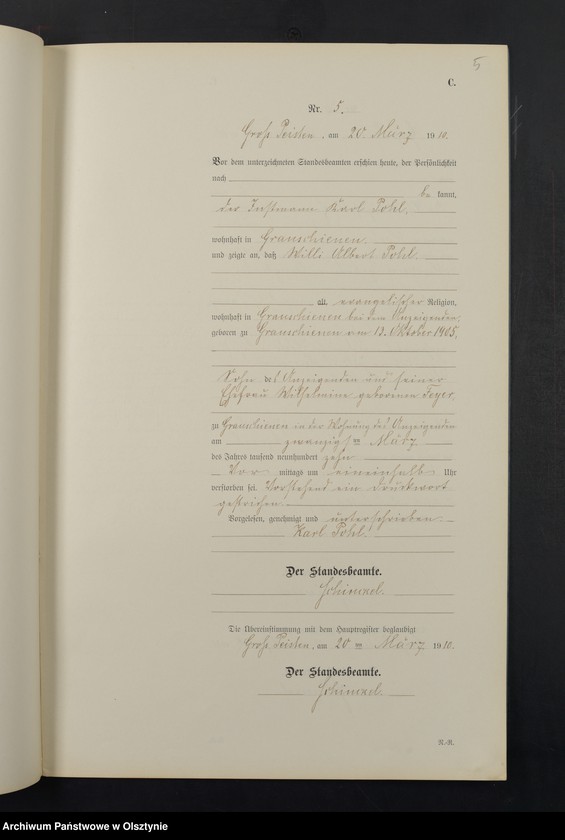 5
C.
Nr. 5.
Groß Peisten, am 20 März 1910.
Vor dem unterzeichneten Standesbeamten erschien heute, der Persönlichkeit
nach
be kannt,
der Instmann Karl Pohl,
wohnhaft in Grauschienen
und zeigte an, daß Willi Albert Pohl
alt, evangelischer Religion,
wohnhaft in Grauschienen bei dem Anzeigenden,
geboren zu Grauschienen am 13. Oktober 1905,
Sohn des Anzeigenden und seiner
Ehefrau Wilhelmine geborenen Feyer
zu Grauschienen in der Wohnung des Anzeigenden
am zwanzigsten März
des Jahres tausend neunhundert zehn
Vor mittags um eineinhalb Uhr
verstorben sei. Vorstehend ein Druckwort
gestrichen.
Vorgelesen, genehmigt und unterschrieben.
Karl Pohl.
Der Standesbeamte.
Die Übereinstimmung mit dem Hauptregister beglaubigt
Groß Peisten, am 20 ten März 1910.
Der Standesbeamte.
R.-R.
Archiwum Państwowe w Olsztynie